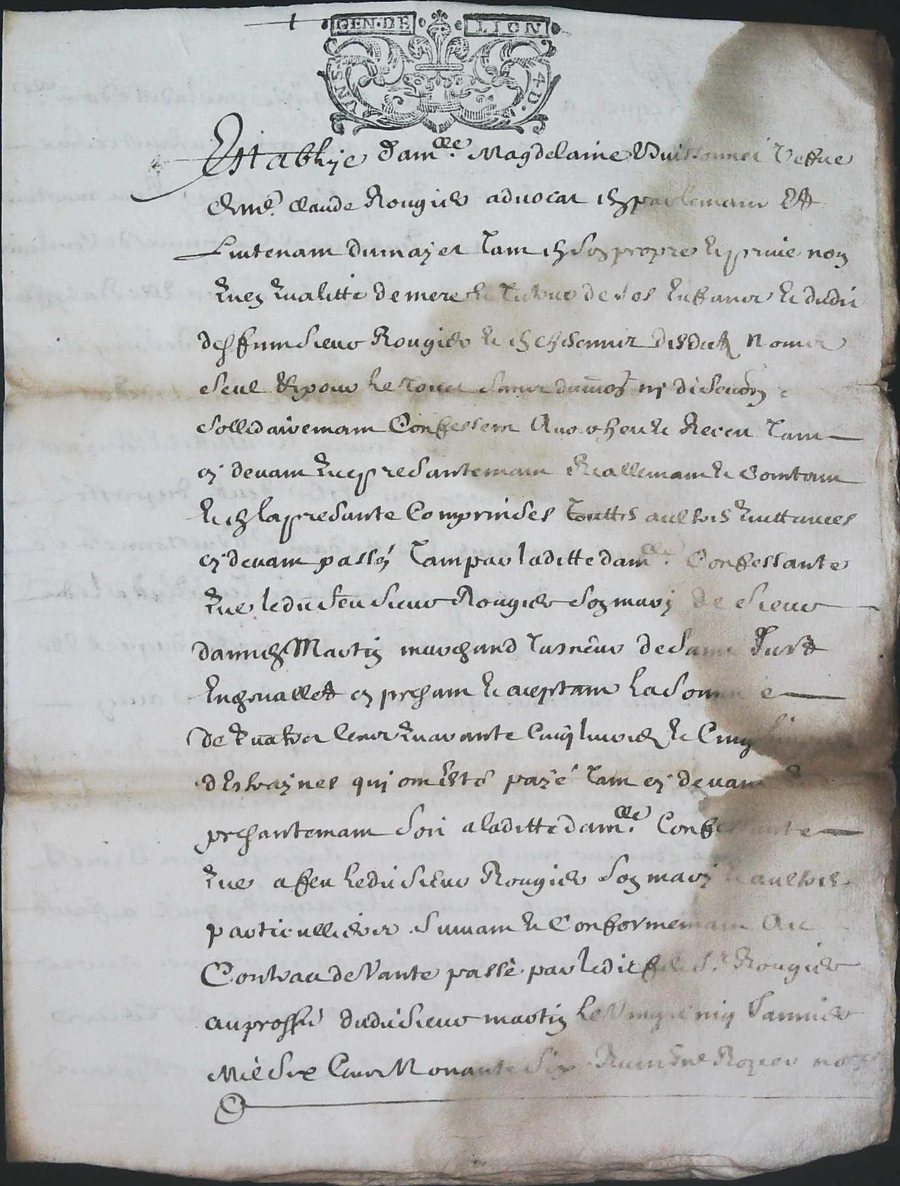 GEN·DE LION
VN·S 4·D·
Establye dam.lle Magdelaine Veffue
de me. Claude Rougier advocat en parlemant Et
Lieutenant du mayet tant en son propre et prive nom
qu'en quallitte de mere et tutrice de ses enfants et dudit
deffunt sieur Rougier et en chescung desdits noms
seule et pour le tout sans division ny discution
sollidairemant confessent avoir heu et receu tant
cy devant que presantemant reallemant et comtant
et en la presante comprinses touttes aultres quittances
cy devant passés tant par laditte dam.lle confessante
que ledit feu sieur Rougier son mary de sieur
Martin marchand tasneur de Saint Just
en chevallet cy presant et aceptant la somme
de quatre cent quarante cinq livres et cinq
d'estraynes qui ont esté payé tant cy devant
presantemant soit a laditte dam.lle confessante
que a feu ledit sieur Rougier son mary et aultres
particulliers suivant et conformemant au
contrac de vante passé par ledit feu sr. Rougier
au proffit dudit sieur martin le vingt janvier
mil six cent nonante six Rozier